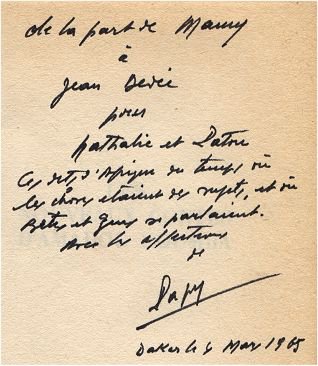 de la part de Mamy
à
Jean Dédé
pour
Nathalie et Patou
Ces dits d'Afrique du temps où
les choses étaient des sujets, et où
bêtes et gens se parlaient.
Avec les affections
de
Papy
Dakar le Mars 1965